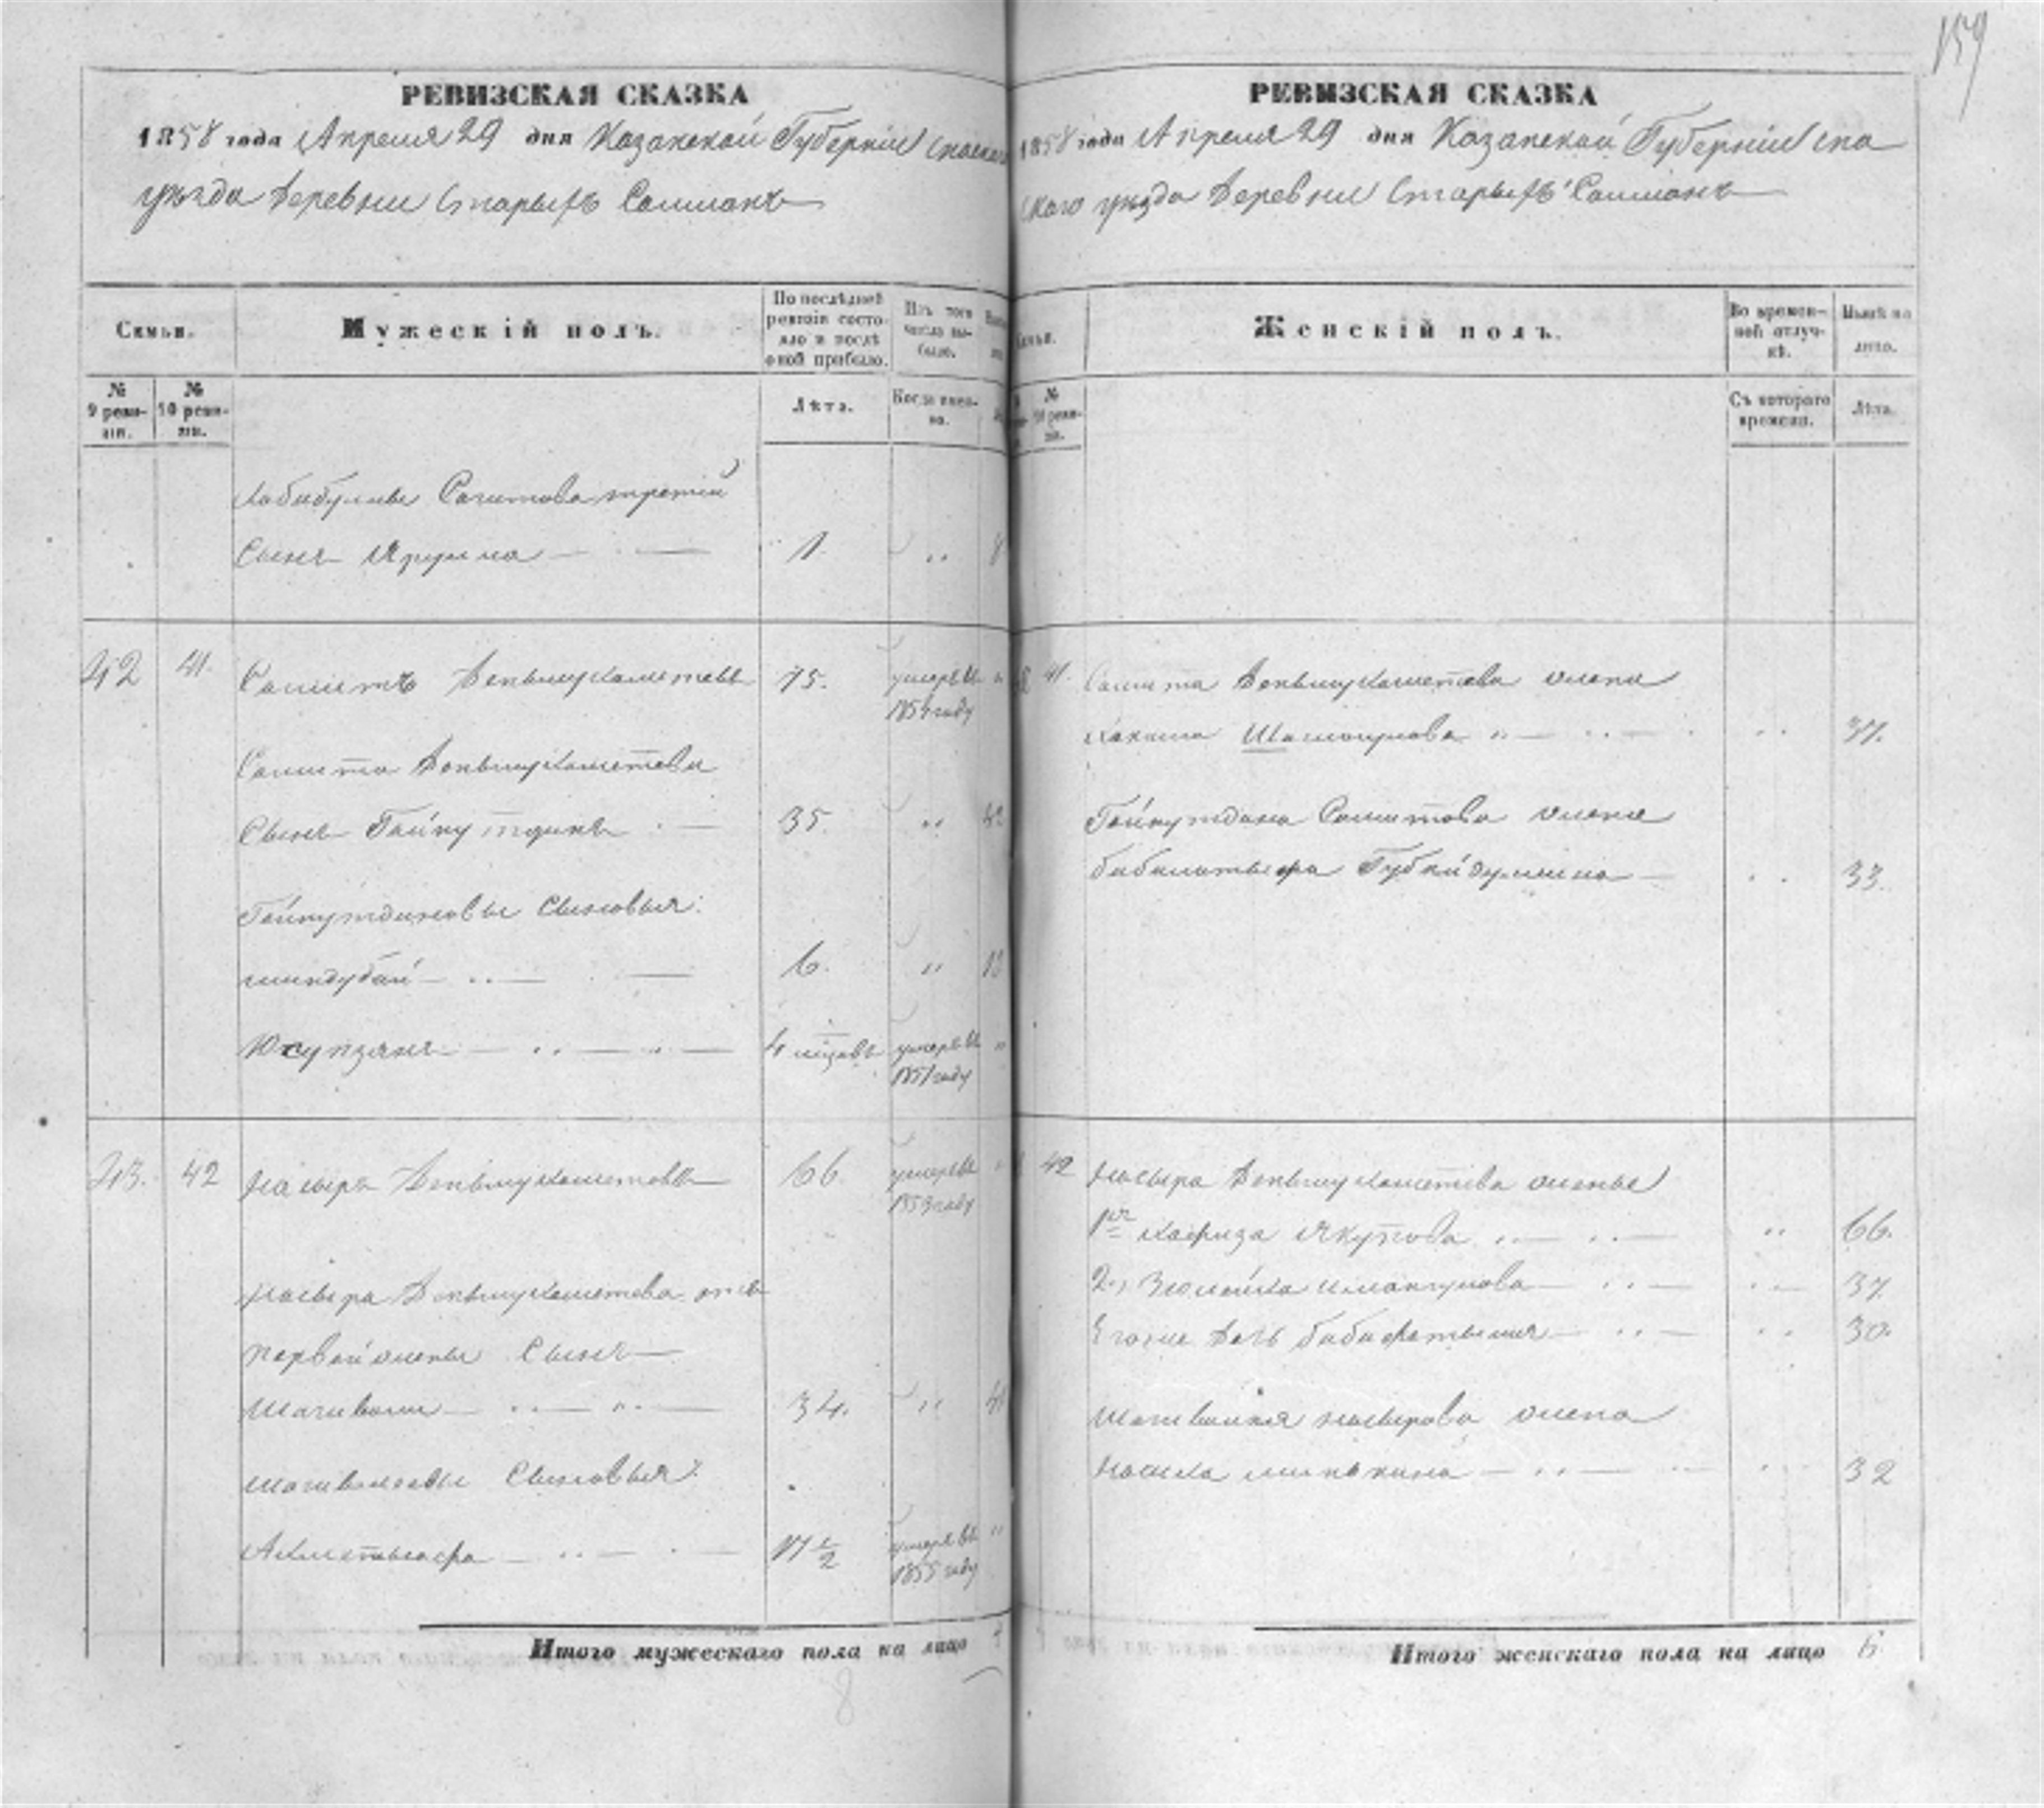 159
РЕВИЗСКАЯ СКАЗКА
1858 года Апреля 29 дня Казанской Губерніи Спаскаго
уѣзда Деревни Старыхъ Салманъ
Семьи.
Мужескій полъ.
По послѣдней ревизіи состояло и послѣ оной прибыло.
Изъ того числа выбыло.
№ 9 ревизіи.
№ 10 ревизіи.
Лѣта.
Когда именно.
Хабибуллы Сагитова третій
Сынъ 1 "
42 41. Сагитъ Деньмухаметевъ 75. умеръ въ 1854 году
Сагита Деньмухаметева
Сынъ Гайнутдинъ 35. "
Гайнутдиновы Сыновья:
миндубай 6. "
Юсупзянъ 4 мцовъ умеръ въ 1851 году
43. 42 Насыръ Деньмухаметевъ 66 умеръ въ 1853 году
Насыра Деньмухаметева отъ
первой жены Сынъ
Шагивали 34. "
Шагивалеевы Сыновья:
17 1/2 умеръ въ 1855 году
Итого мужескаго пола на лицо
8
РЕВИЗСКАЯ СКАЗКА
1858 года Апреля 29 дня Казанской Губерніи Спа
скаго уѣзда Деревни Старыхъ Салманъ
Семьи.
Женскій полъ.
Во временной отлучкѣ.
Нынѣ на лицо.
№ 10 ревизіи.
Съ котораго времени.
Лѣта.
41. Сагита Деньмухаметева жена
37.
Гайнутдина Сагитова жена
Губайдуллина 33.
42 Насыра Деньмухаметева жены
1я Хафиза Якупова 66.
2я Зюлейха 37
Его же дочь 30.
Насырова жена
32
Итого женскаго пола на лицо 6